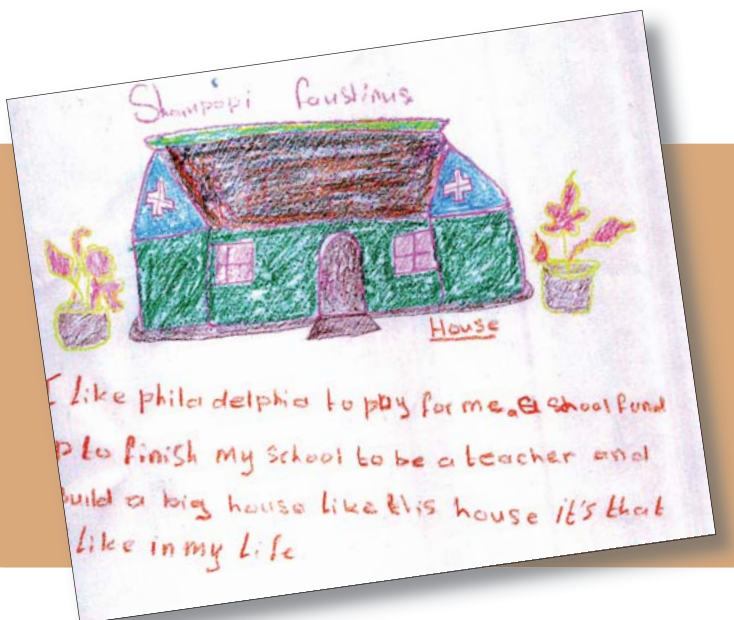 Shampopi Faustinus
House
I like philadelphia to pay for me a shool fund
p to finish my school to be a teacher and
build a big house like this house it's that
like in my life